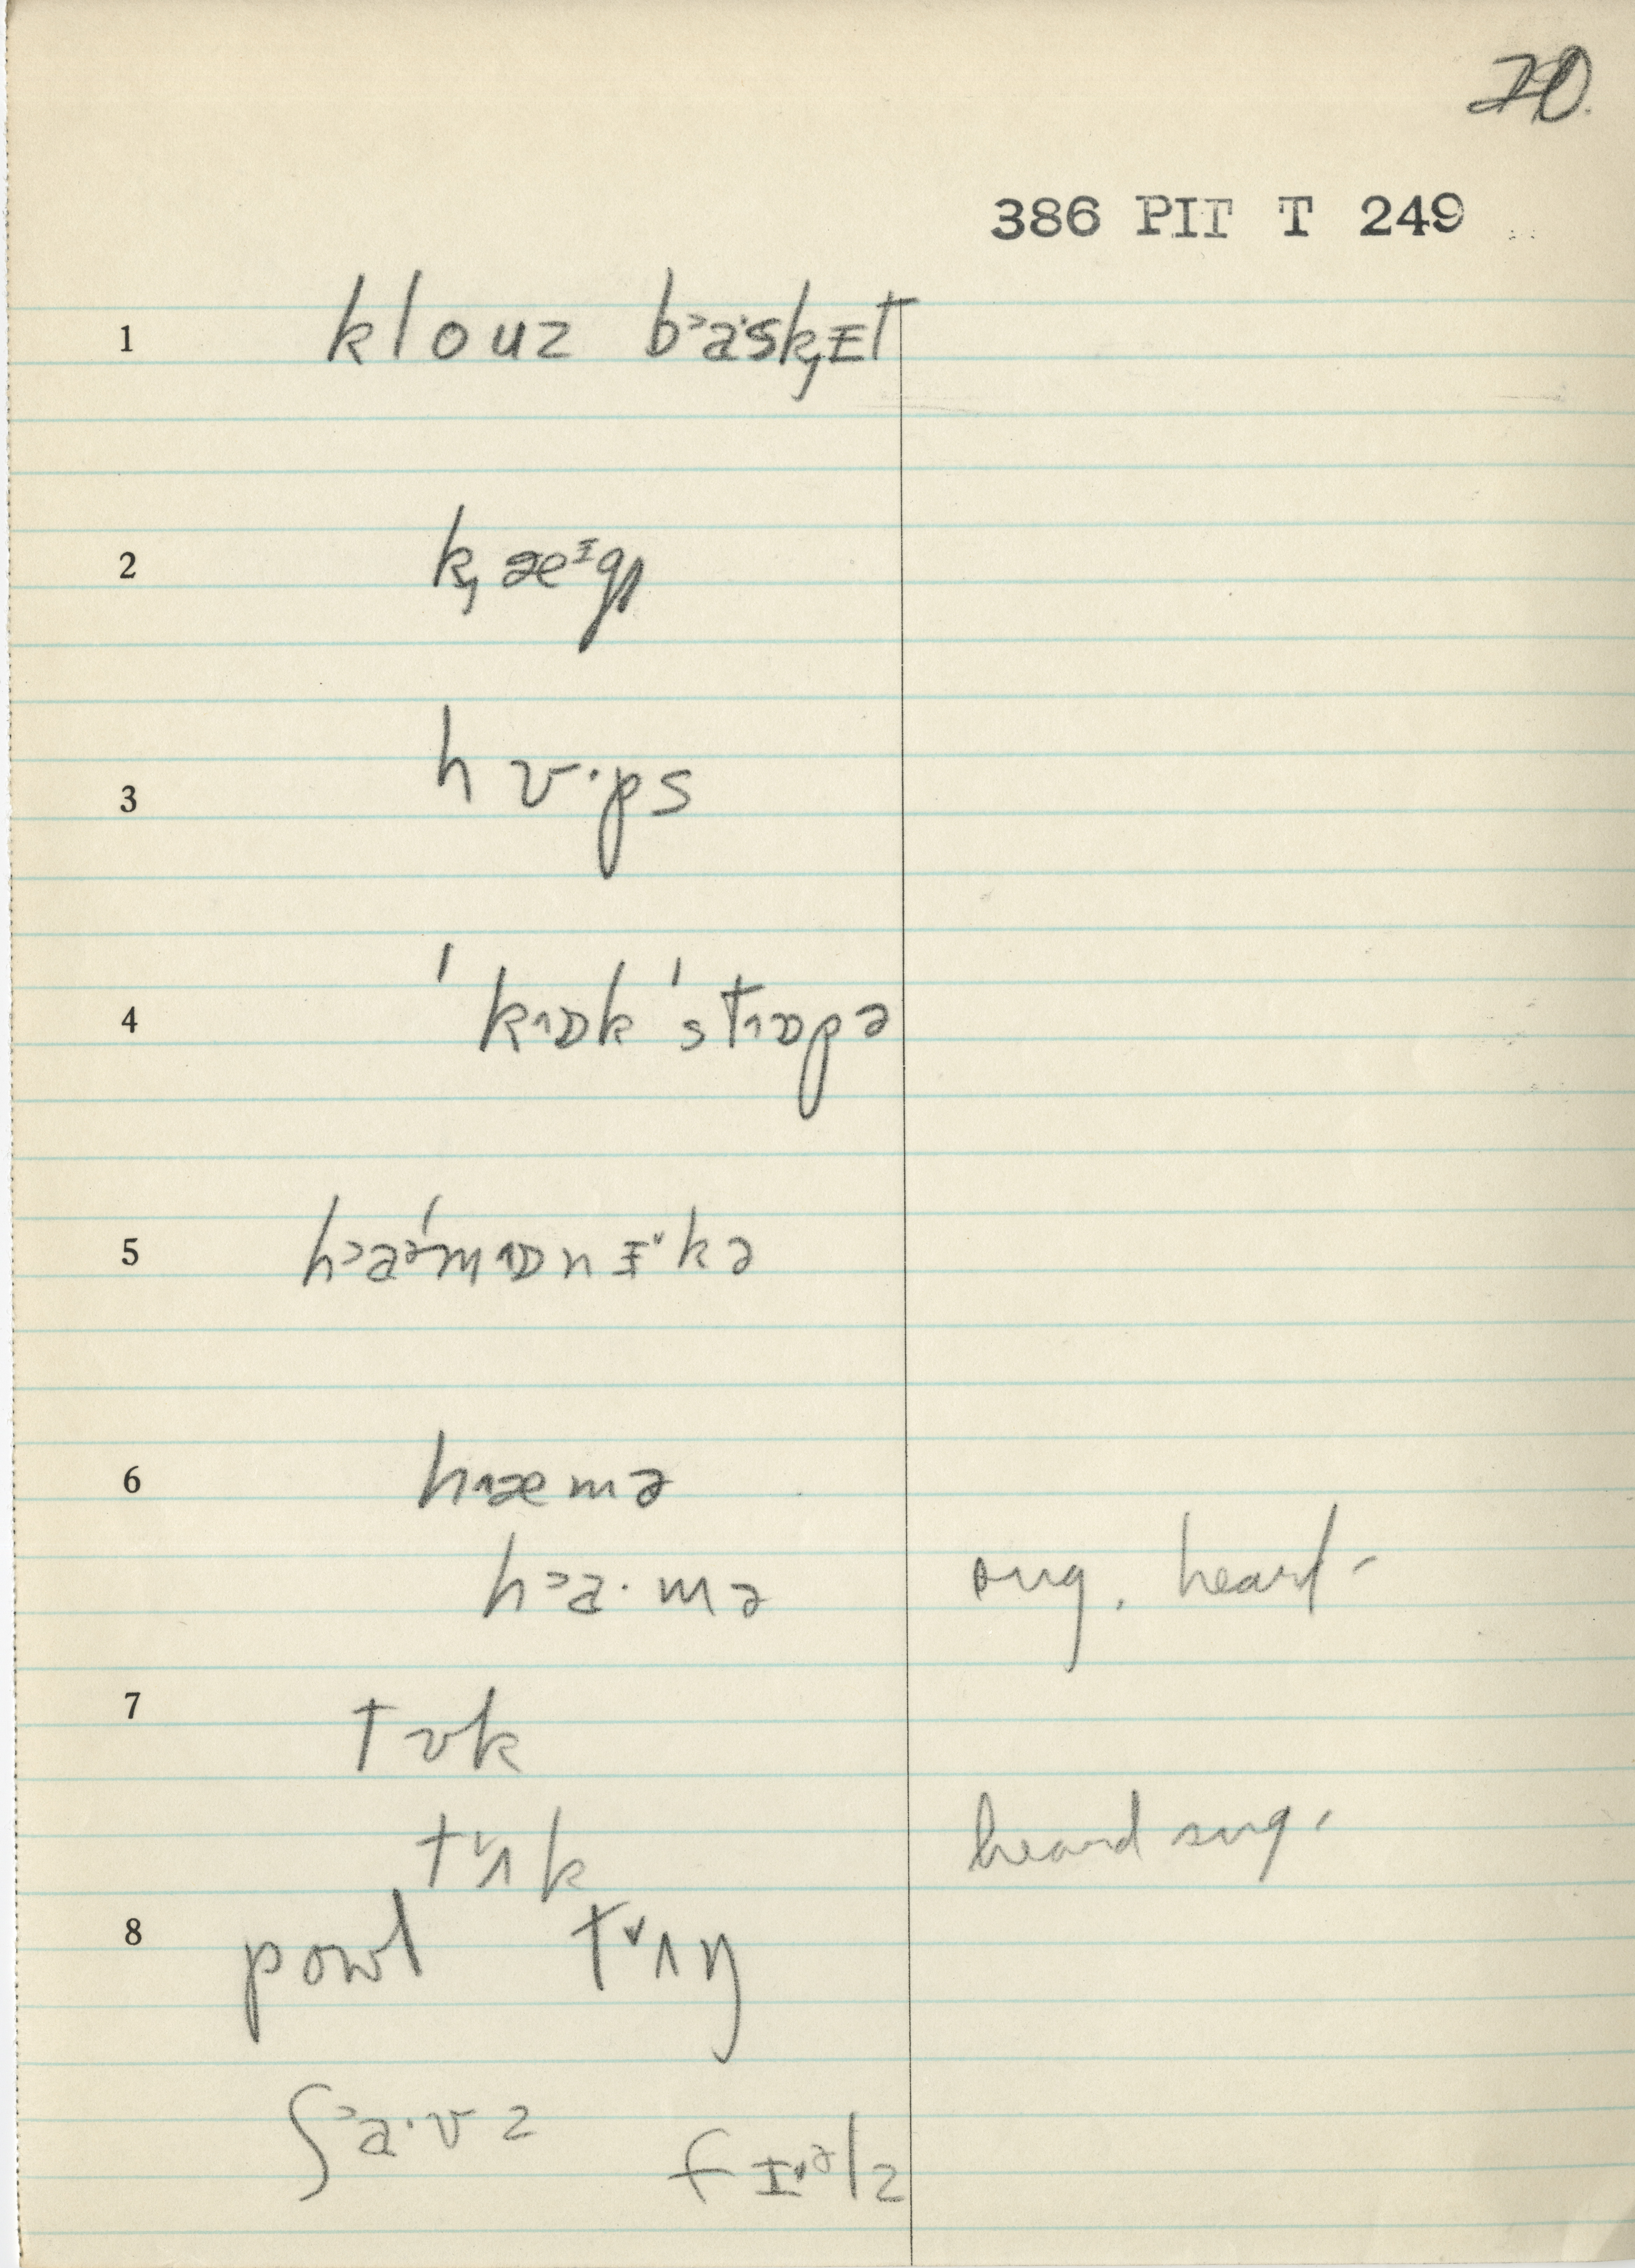 20.
386 PIT T 249
1 klouz b˃a·sk̡ɪt
2 k̡æᶦg
3 hʊ·ps
4 ˈk˄ɒk ˈst˄ɒpə
5 h˃aᵊˈm˄ɒnɪ˅kə
6 h˄æmə
h˃a·mə sug. heard-
7 tʊk
t˅ʌk heard sug.
8 powl t˅ʌŋ
ʃ˃a·vz fɪ˅ᵊlz